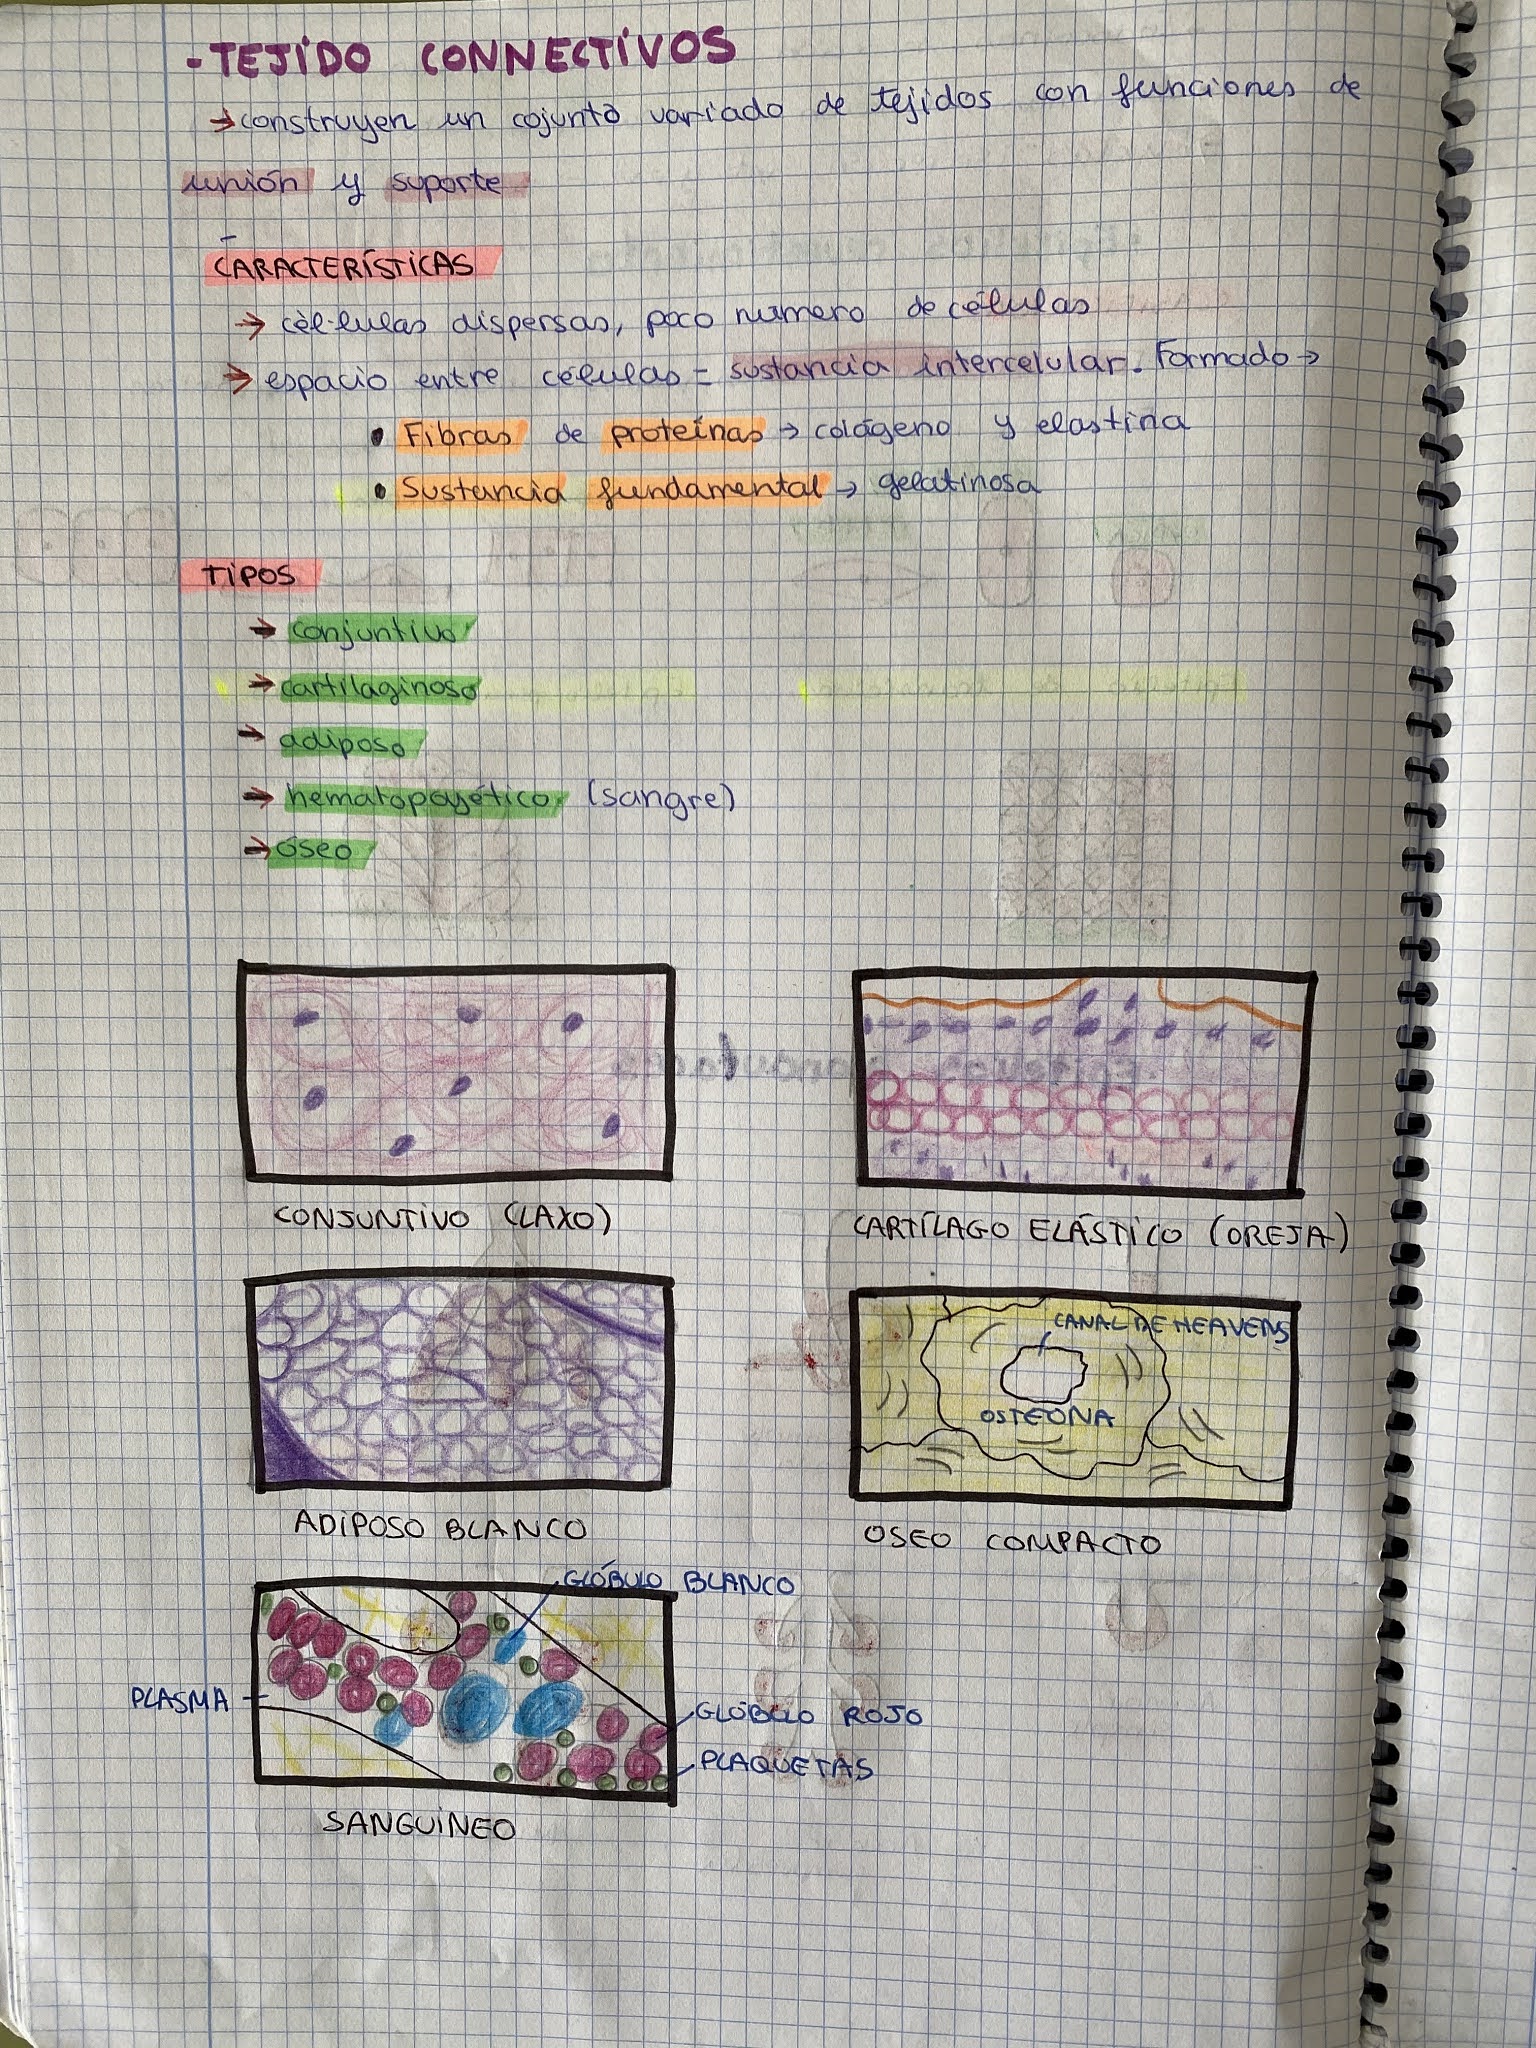 - TEJIDO CONNECTIVOS
→ construyen un cojunto variado de tejidos con funciones de
unión y suporte
CARACTERÍSTICAS
→ cèl·lulas dispersas, poco numero de células
→ espacio entre células = sustancia intercelular. Formado →
• Fibras de proteínas → colágeno y elastina
• Sustancia fundamental → gelatinosa
TIPOS
→ conjuntivo
→ cartilaginoso
→ adiposo
→ hematopoyético (sangre)
→ óseo
CONJUNTIVO (LAXO)
CARTÍLAGO ELÁSTICO (OREJA)
CANAL DE HEAVENS
OSTEONA
ADIPOSO BLANCO
OSEO COMPACTO
GLÓBULO BLANCO
PLASMA
GLÓBULO ROJO
PLAQUETAS
SANGUINEO